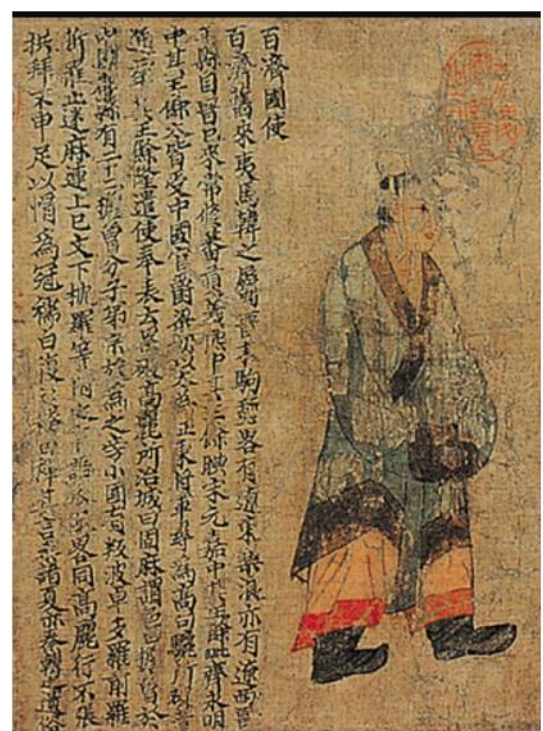 百濟國使
百濟舊來夷馬韓之屬晉末駒驪畧有遼東樂浪亦有遼西晉
平縣自晉已來常修蕃貢義熙中其王餘腆宋元嘉中其王餘毗齊永明
中其王餘太皆受中國官爵梁初以太為征東將軍尋為高句驪所破普
通六年其王餘隆遣使奉表云累破高麗所治城曰固麻謂邑曰檐魯於
中國郡縣有二十二檐魯分子弟宗族為之旁小國有叛波卓多羅前羅
斯羅止迷麻連上巳文下枕羅等附之言語衣服畧同高麗行不張
拱拜不申足以帽為冠襦曰複衫袴曰褌其言參諸夏亦秦韓之遺俗